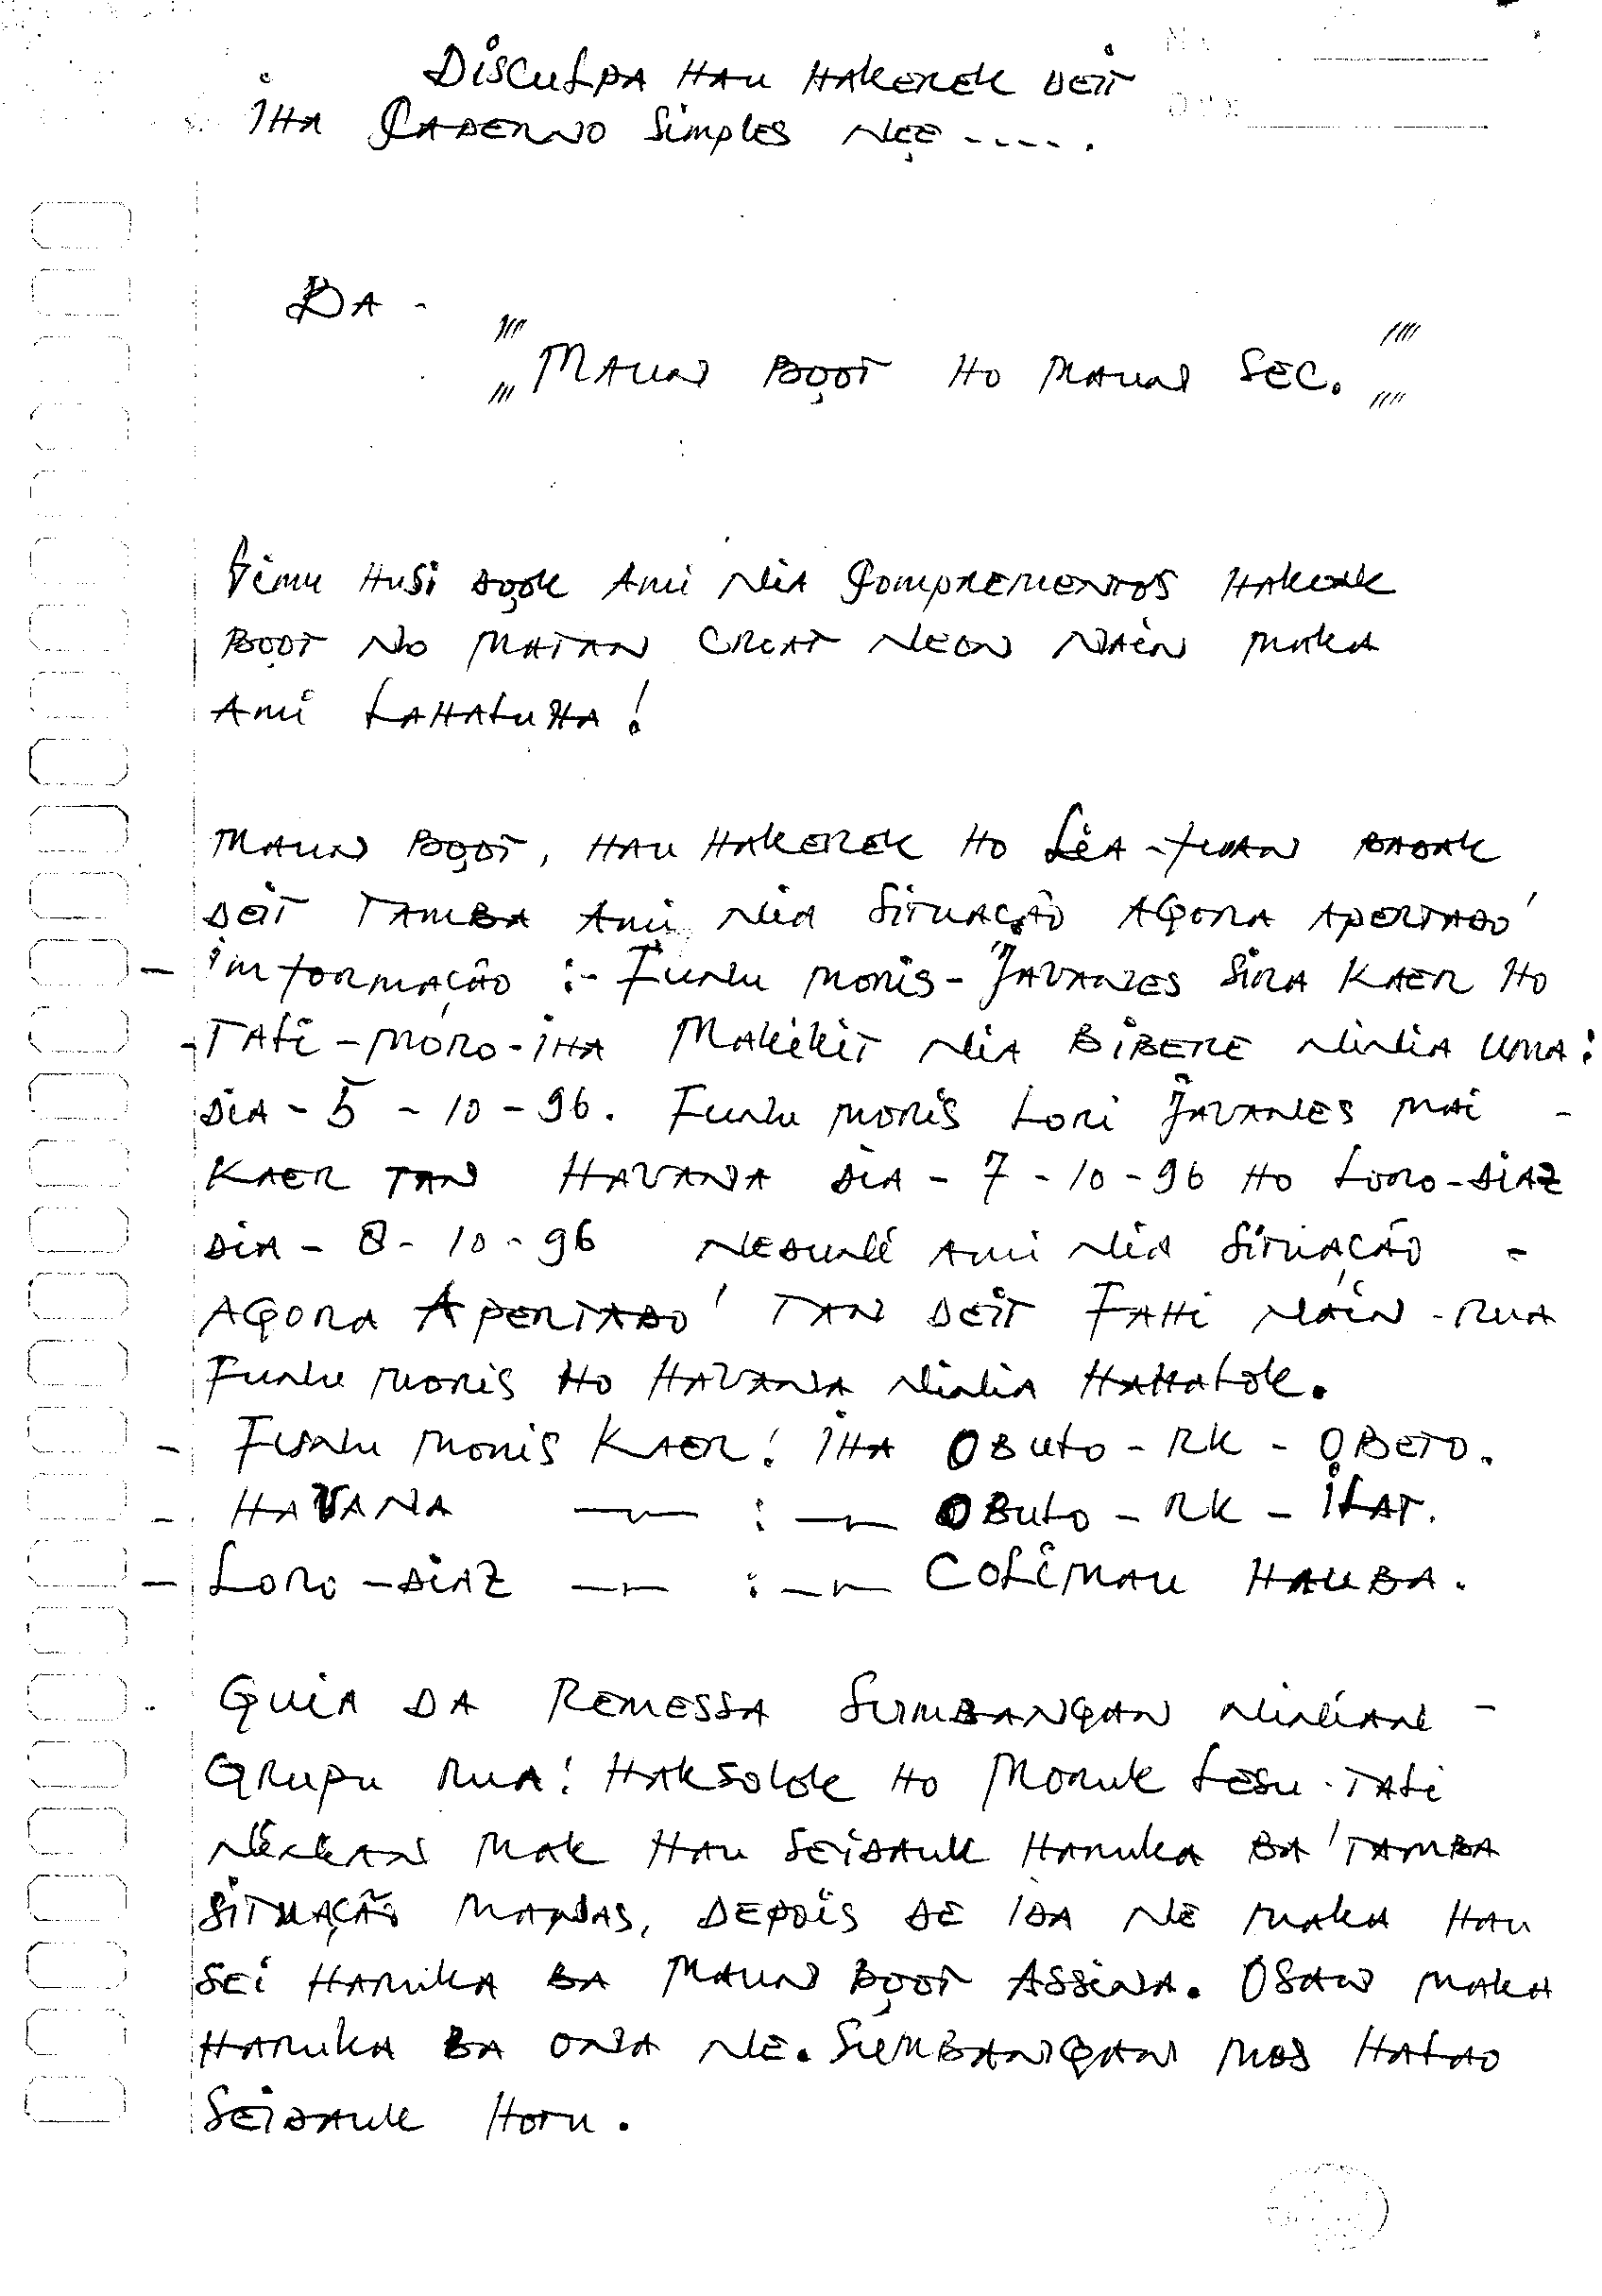 DISCULPA HAU HAKEREK DEIT
IHA CADERNO SIMPLES NEE-----.
BA -
"MAUN BOOT HO MAUN SEC."
HUSI DOOK AMI NIA COMPREMENTOS HAKUAK
BOOT NO MATAN CREAT NEON NAIN MAKA
AMI LAHALUHA!
MAUN BOOT, HAU HAKEREK HO LIA-FUAN BADAK
DEIT TAMBA AMI NIA SITUAÇÃO AGORA APERTADO'
- IMFORMAÇÃO :- FUNU MORIS-JAVANES SIRA KAER HO
-TALI-MORO-IHA MAKIKIT NIA BIBERE NINIA UMA:
DIA-5-10-96. FUNU MORIS LORI JAVANES MAI -
KAER TAN HAVANA DIA-7-10-96 HO LORO-DIAZ
DIA-8-10-96 NEDUNI AMI NIA SITUAÇÃO -
AGORA APERTADO' TAN DEIT FALI NAIN-RUA
FUNU MORIS HO HAVANA NINIA HAHALOK.
- FUNU MORIS KAER! IHA OBULO-RK-OBETO.
- HAVANA —— : —— OBULO-RK-ILAT.
- LORO-DIAZ —— : —— COLIMAU HAUBA.
GUIA DA REMESSA SUMBANGAN NINIAN -
GRUPU RUA! HAKSOLOK HO MORUK LESU-TALI
MAK HAU SEIDAUK HARUKA BA'TAMBA
SITUAÇÃO MANAS, DEPOIS DE IDA NE MAKA HAU
SEI HARUKA BA MAUN BOOT ASSINA. OSAN MAKA
HARUKA BA ONA NE. SUMBANGAN MOS HALAO
SEIDAUK HOTU.